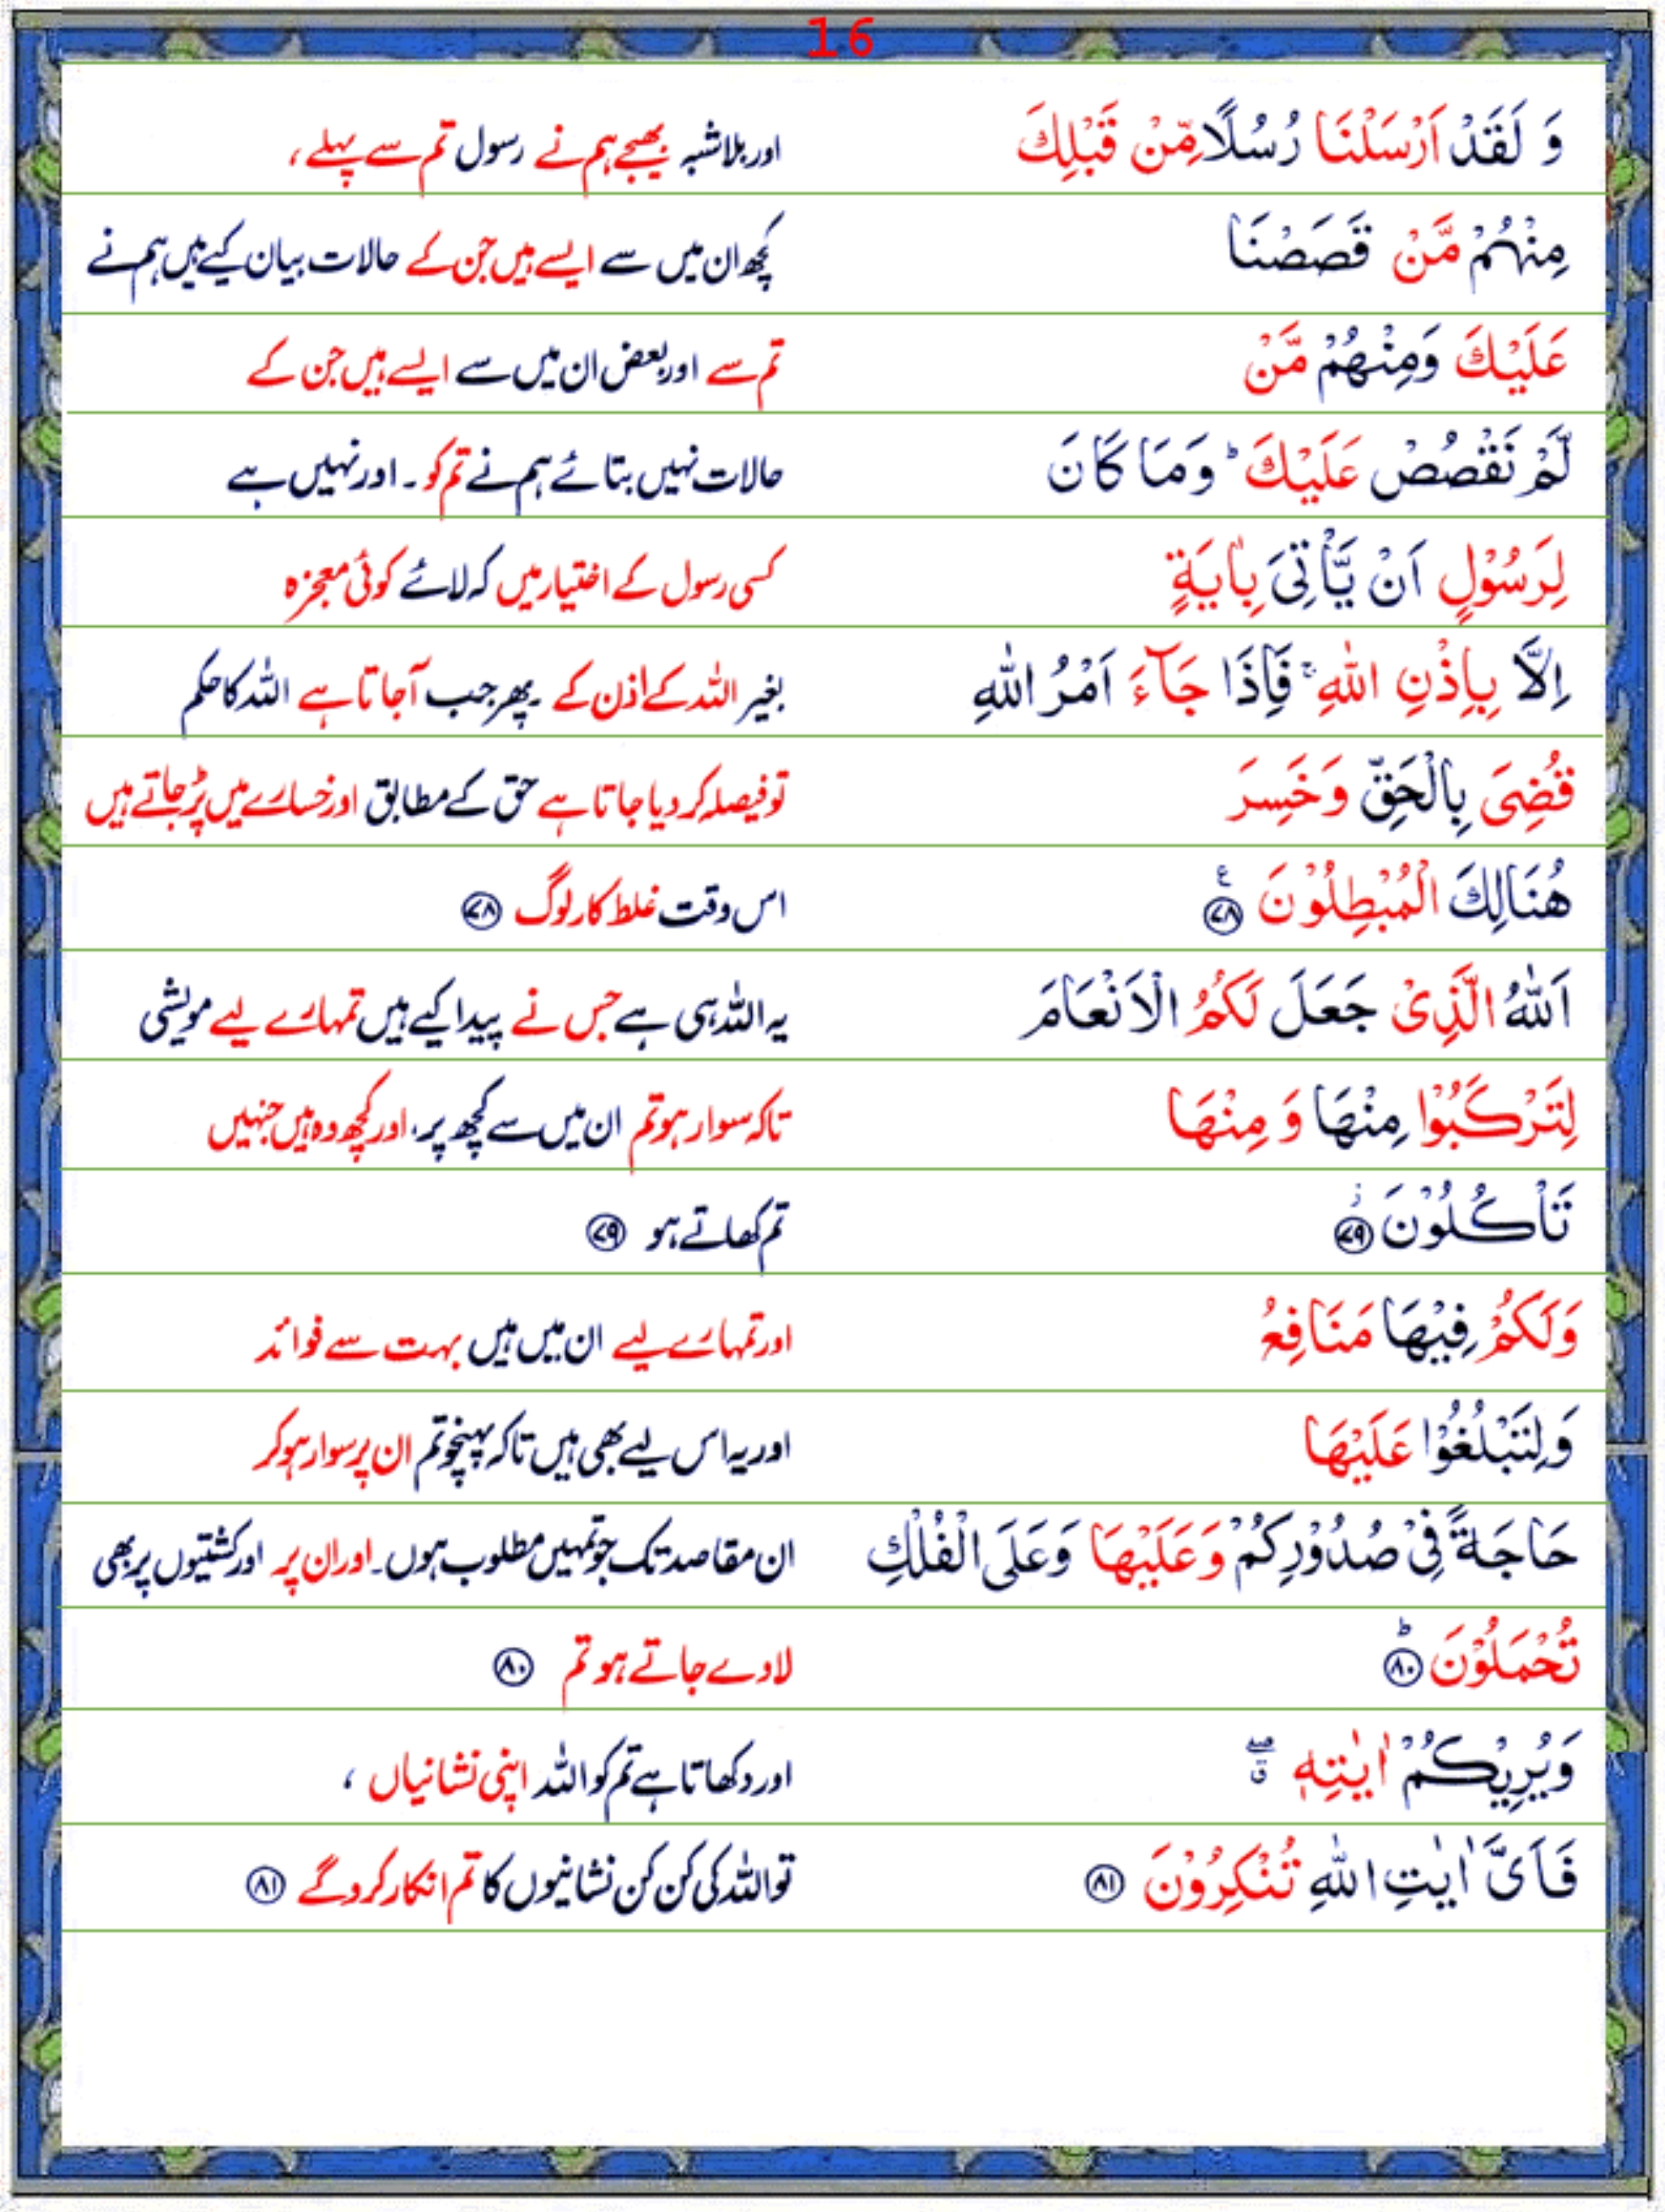 16
وَ لَقَدْ اَرْسَلْنَا رُسُلًا مِّنْ قَبْلِكَ اور بلاشبہ بھیجے ہم نے رسول تم سے پہلے ،
مِنْهُمْ مَّنْ قَصَصْنَا کچھ ان میں سے ایسے ہیں جن کے حالات بیان کیے ہیں ہم نے
عَلَيْكَ وَمِنْهُمْ مَّنْ تم سے اور بعض ان میں سے ایسے ہیں جن کے
لَّمْ نَقْصُصْ عَلَيْكَ ؕ وَمَا كَانَ حالات نہیں بتائے ہم نے تم کو ۔ اور نہیں ہے
لِرَسُوْلٍ اَنْ يَّاْتِىَ بِاٰيَةٍ کسی رسول کے اختیار میں کہ لائے کوئی معجزہ
اِلَّا بِاِذْنِ اللّٰهِ ۚ فَاِذَا جَآءَ اَمْرُ اللّٰهِ بغیر اللہ کے اذن کے ۔ پھر جب آجاتا ہے اللہ کا حکم
قُضِىَ بِالْحَقِّ وَخَسِرَ تو فیصلہ کر دیا جاتا ہے حق کے مطابق اور خسارے میں پڑ جاتے ہیں
هُنَالِكَ الْمُبْطِلُوْنَ ۧ ﴿۷۸﴾ اس وقت غلط کار لوگ ﴿۷۸﴾
اَللّٰهُ الَّذِىْ جَعَلَ لَكُمُ الْاَنْعَامَ یہ اللہ ہی ہے جس نے پیدا کیے ہیں تمہارے لیے مویشی
لِتَرْكَبُوْا مِنْهَا وَ مِنْهَا تاکہ سوار ہو تم ان میں سے کچھ پر، اور کچھ وہ ہیں جنہیں
تَاْكُلُوْنَ ؗ ﴿۷۹﴾ تم کھاتے ہو ﴿۷۹﴾
وَلَكُمْ فِيْهَا مَنَافِعُ اور تمہارے لیے ان میں ہیں بہت سے فوائد
وَلِتَبْلُغُوْا عَلَيْهَا اور یہ اس لیے بھی ہیں تاکہ پہنچو تم ان پر سوار ہو کر
حَاجَةً فِىْ صُدُوْرِكُمْ وَعَلَيْهَا وَعَلَى الْفُلْكِ ان مقاصد تک جو تمہیں مطلوب ہوں ۔ اور ان پر اور کشتیوں پر بھی
تُحْمَلُوْنَ ؕ ﴿۸۰﴾ لادے جاتے ہو تم ﴿۸۰﴾
وَيُرِيْكُمْ اٰيٰتِهٖ ۖ ق اور دکھاتا ہے تم کو اللہ اپنی نشانیاں ،
فَاَىَّ اٰيٰتِ اللّٰهِ تُنْكِرُوْنَ ﴿۸۱﴾ تو اللہ کی کن کن نشانیوں کا تم انکار کرو گے ﴿۸۱﴾